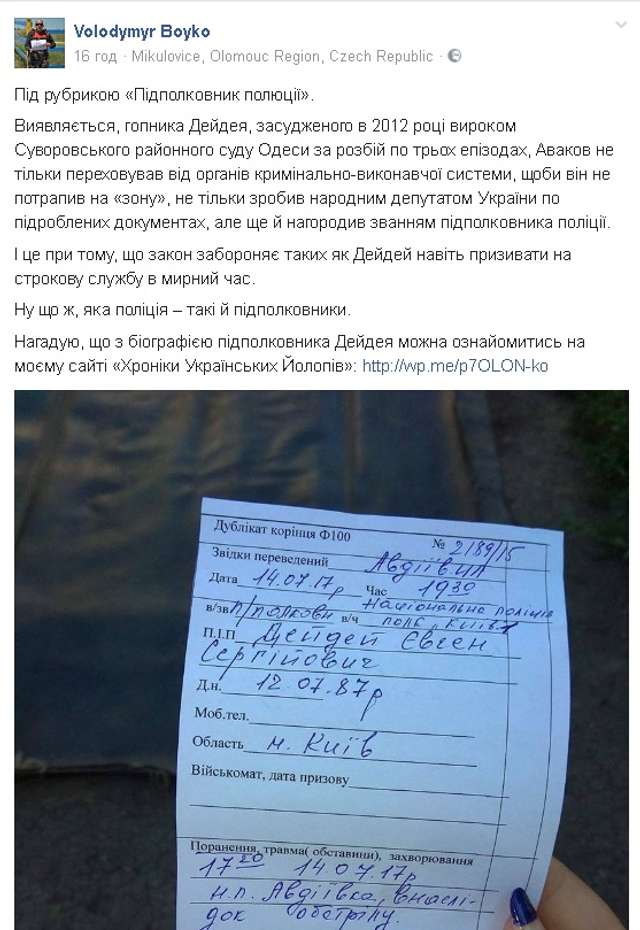 Volodymyr Boyko
16 год · Mikulovice, Olomouc Region, Czech Republic ·
Під рубрикою «Підполковник полюції».
Виявляється, гопника Дейдея, засудженого в 2012 році вироком
Суворовського районного суду Одеси за розбій по трьох епізодах, Аваков не
тільки переховував від органів кримінально-виконавчої системи, щоби він не
потрапив на «зону», не тільки зробив народним депутатом України по
підроблених документах, але ще й нагородив званням підполковника поліції.
І це при тому, що закон забороняє таких як Дейдей навіть призивати на
строкову службу в мирний час.
Ну що ж, яка поліція – такі й підполковники.
Нагадую, що з біографією підполковника Дейдея можна ознайомитись на
моєму сайті «Хроніки Українських Йолопів»: http://wp.me/p7OLON-ko
Дублікат корінця Ф100
№ 2189/15
Звідки переведений Авдіїв.ЦЛ
Дата 14.07.17р Час 19 30
в/зв п/полковн в/ч Національна поліція
полк, Київ 1
П.І.П Дейдей Євген
Сергійович
Д.н. 12.07.87р
Моб.тел.
Область м. Київ
Військомат, дата призову
Поранення, травма( обставини), захворювання
17 20 14.07.17р
н.п. Авдіївка, внаслі-
док обстрілу.